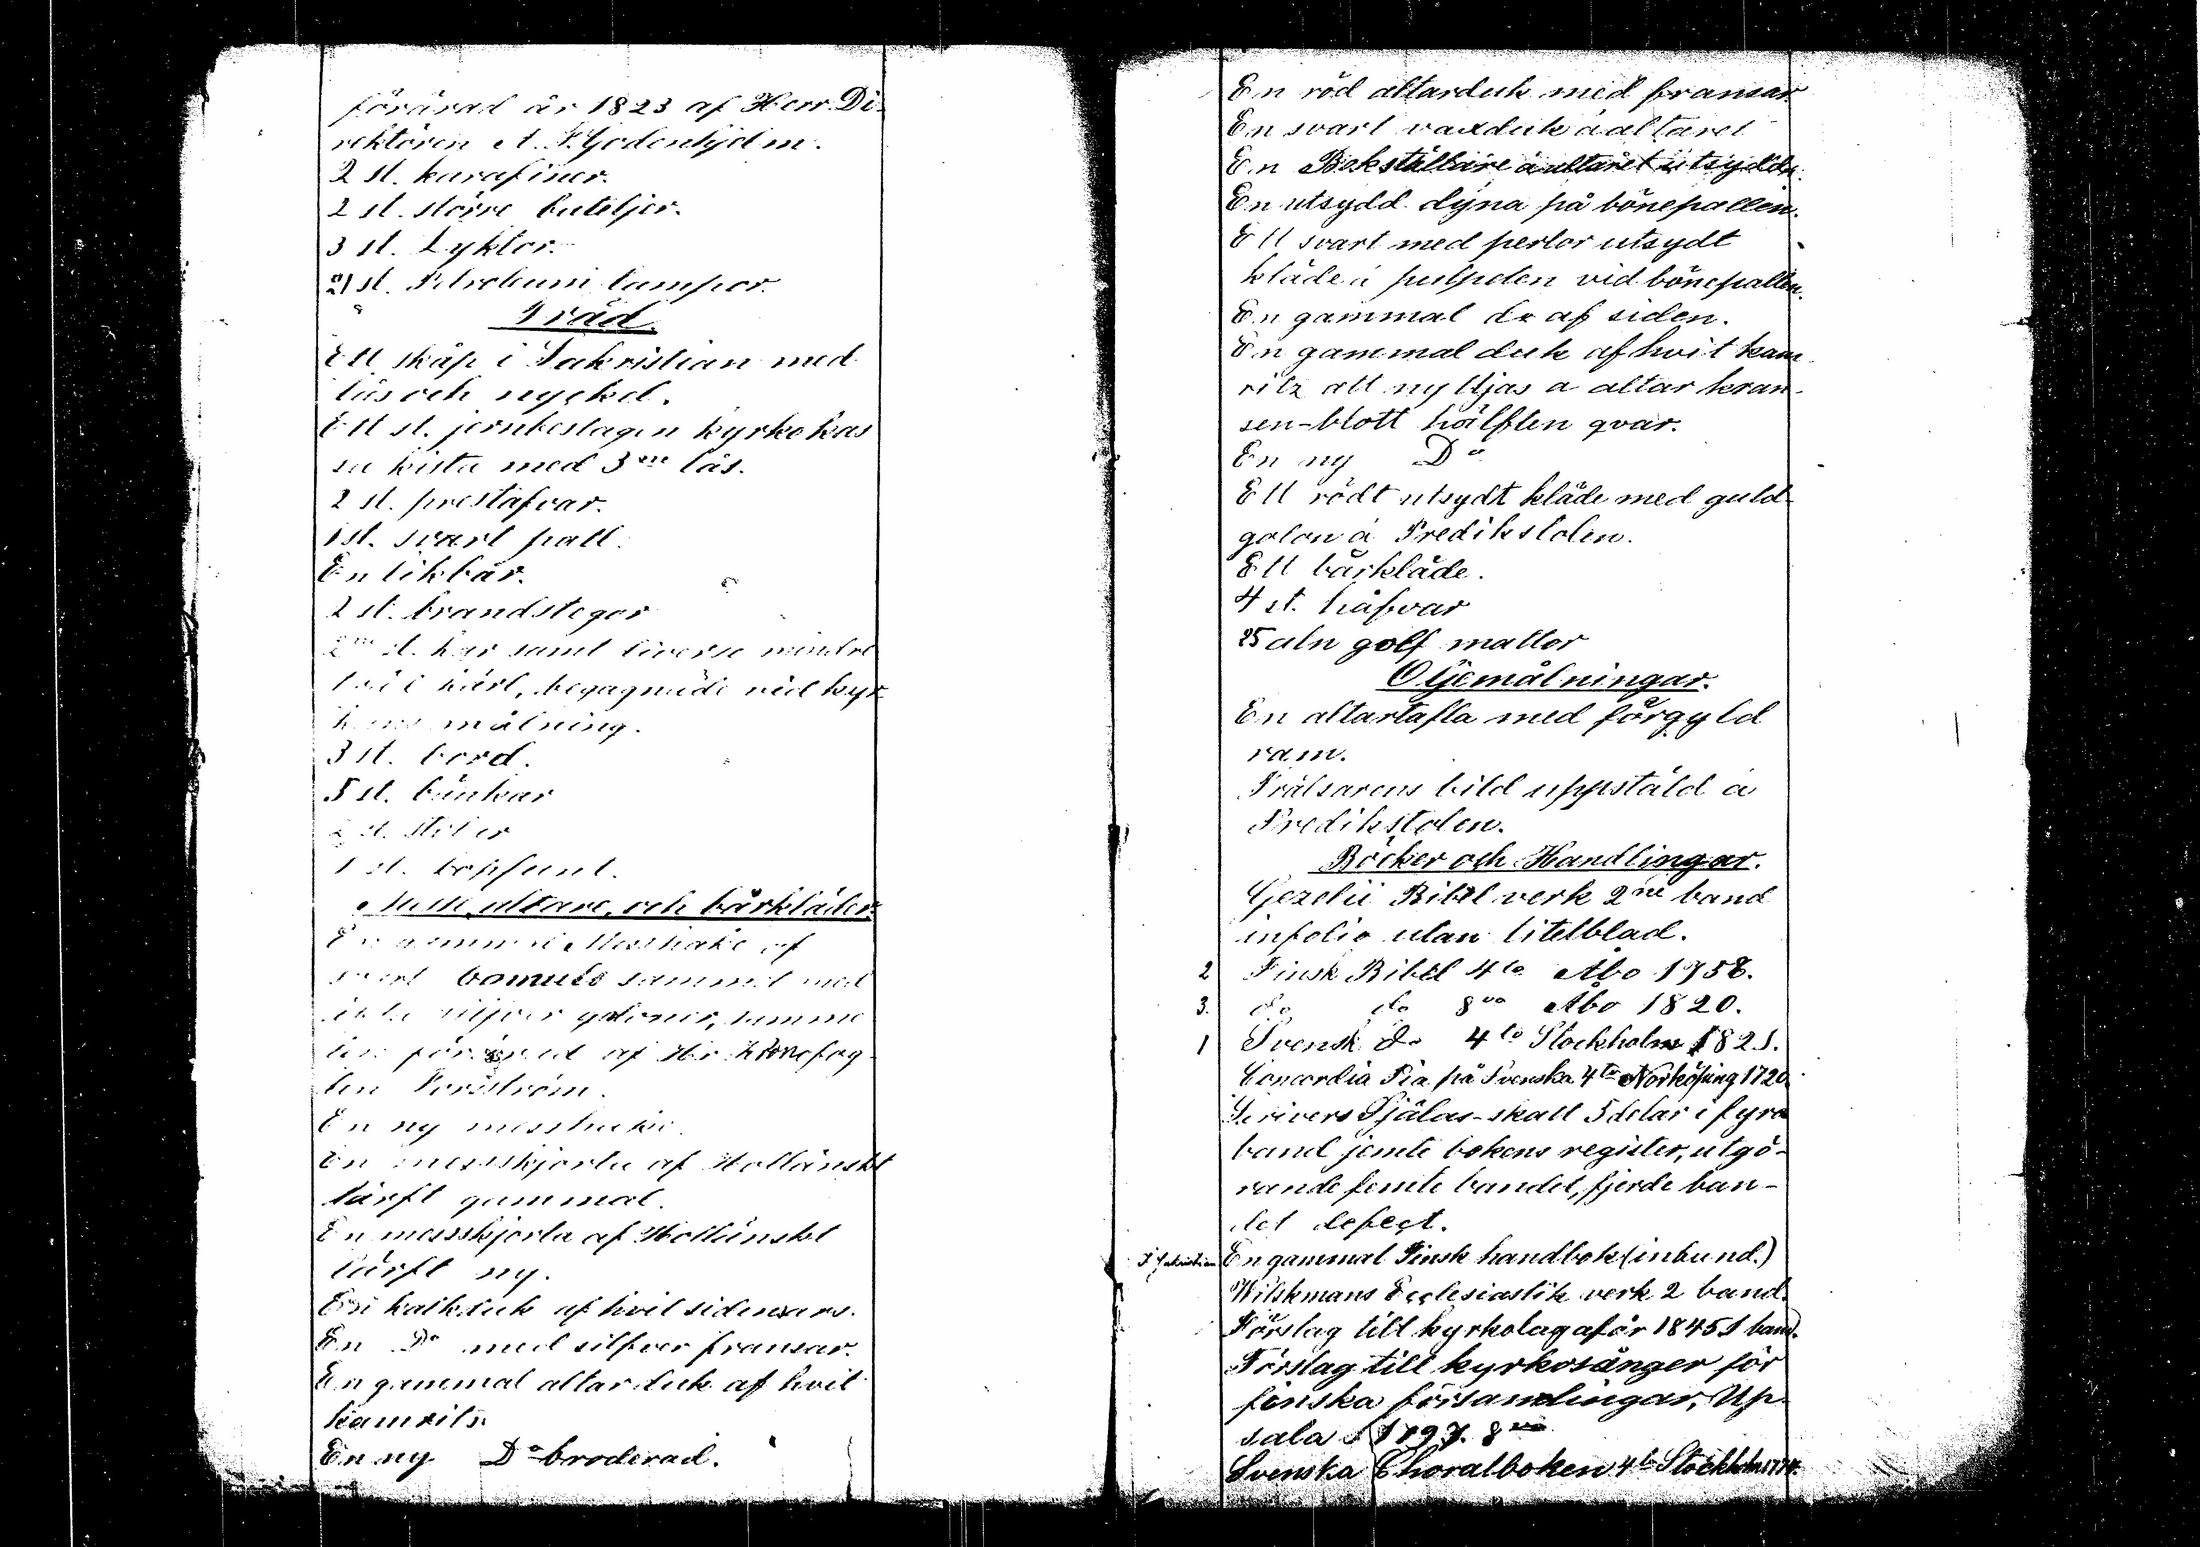 förärad år 1823 af Herr Di-
rektören A. F. Godenhjelm.
2 st. karafiner.
2 st. större buteljer.
3 st. Lyktor.
21 st. Petroleum lampor.
Träd.
Ett skåp i Sakristian med
lås och nyckel.
Ett st. jernbeslagen kyrkokas
sa kista med 3ne lås.
2 st. prestafvar.
1 st. svart pall.
En likbår.
2 st. brandstegar
2ne st. kar samt diverse mindre
träd kärl, begagnade vid kyr-
kans målning.
3 st. bord.
5 st. bänkar
2 st. stolar
1 st. dopfunt.
Mess, altare, och bårkläder.
En gammal Messhake af
svart bomuls sammet med
silfver galoner, samme
ten förärad af Hr Kronofog-
den Forsström.
En ny messhake.
En messskjorta af Holländskt
lärft gammal.
En messskjorta af Holländskt
lärft ny.
En kalkduk af hvit sidensars.
En Do med silfver fransar.
En gammal altarduk af hvit
kamrits.
En ny Do broderad.
En röd altarduk med fransar
En svart vaxduk å altaret
En Bokställare å altaret utsydde.
En utsydd dyna på bönepallen.
Ett svart med perlor utsydt
kläde å pulpeten vid bönepallen.
En gammal do af siden.
En gammal duk af hvit kam
ritz att nyttjas a altar kran-
sen-blott hälften qvar.
En ny Do
Ett rödt utsydt kläde med guld-
galon å Predikstolen.
Ett bårkläde.
4 st. håfvar
25 aln golf mattor
Oljemålningar.
En altartafla med förgyld
ram.
Frälsarens bild uppstäld å
Predikstolen.
Böcker och Handlingar.
Gezelii Bibel verk 2ne band
infolio utan titelblad.
2 Finsk Bibel 4to Åbo 1758.
3. do do 8vo Åbo 1820.
1 Svensk do 4to Stockholm 1821.
Concordia Pia på Svenska 4to Norköping 1720
Scrivers Själas-skatt 5 delar i fyra
band jemte bokens register, utgö-
rande femte bandet, fjerde ban-
det defect.
I Sakristian En gammal Finsk handbok (inbund.)
Wilskmans Ecclesiastik verk 2 band.
Förslag till kyrkolag af år 1845 1 band.
Förslag till kyrkosånger för
finska församlingar, Up-
sala 1797. 8vo
Svenska Choralboken 4to Stockholm